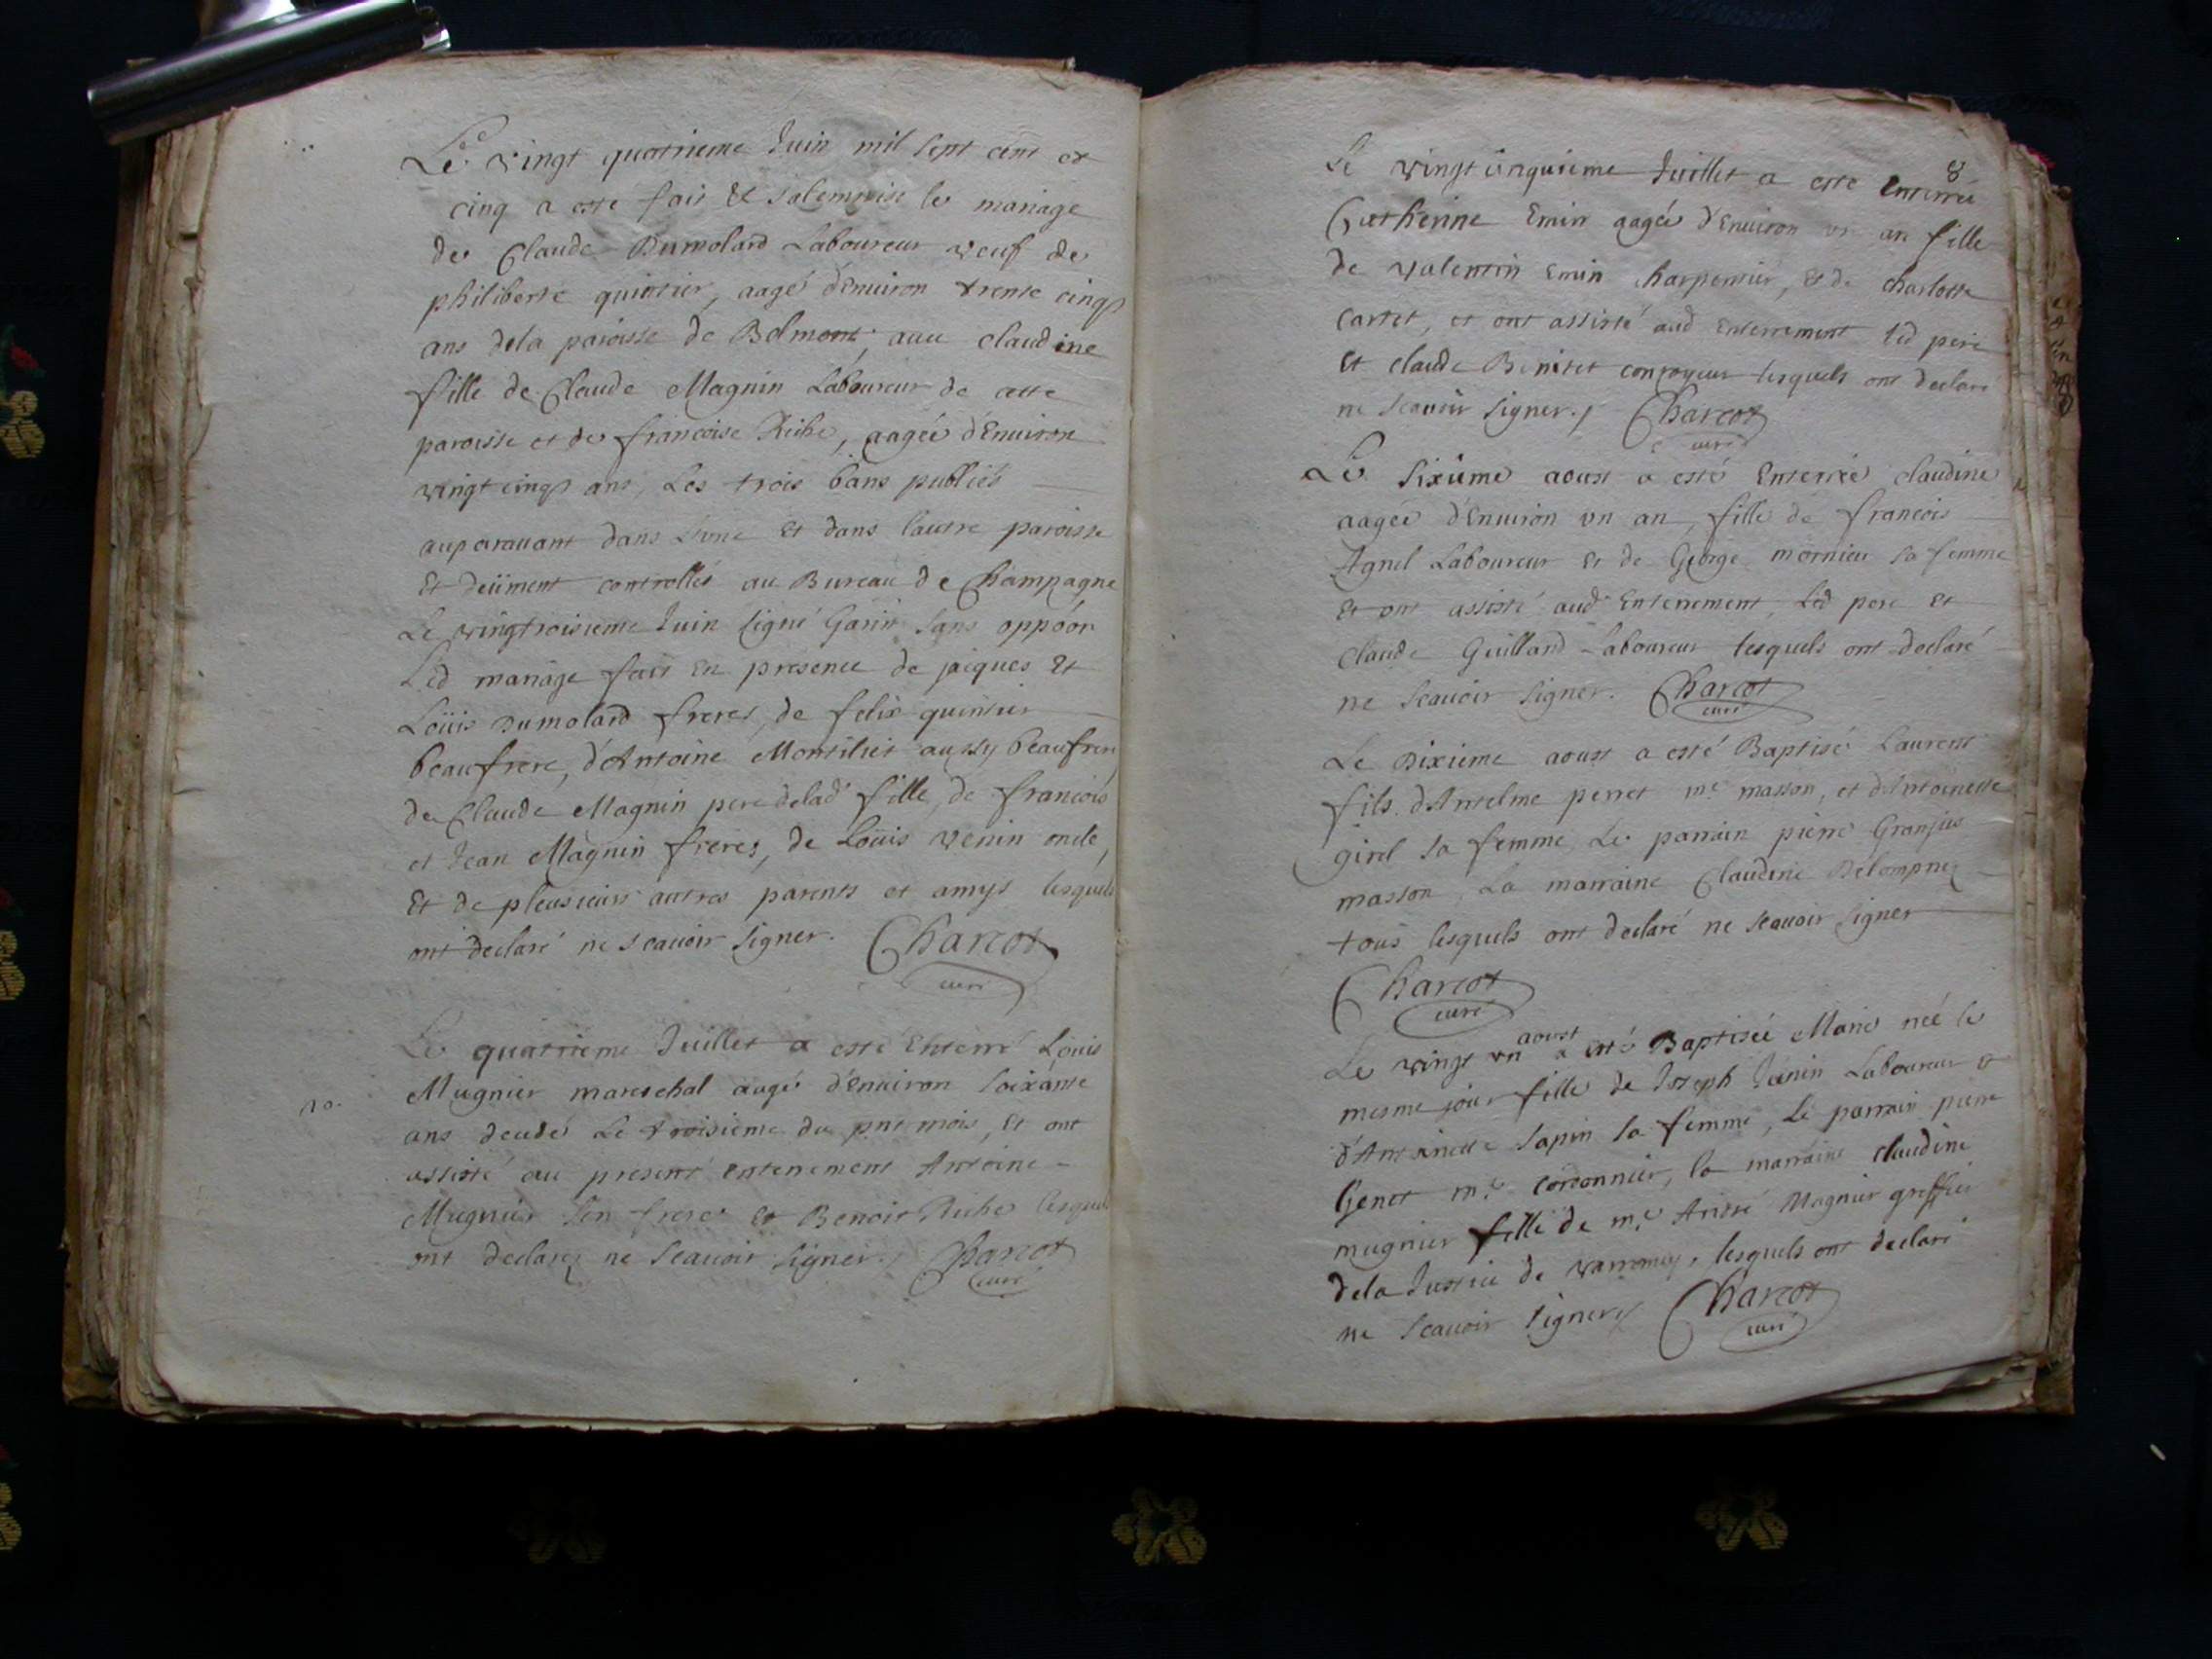 Le vingt quatrieme Juin mil sept cent et
cinq a esté fait & solemnise le mariage
de Claude Dumolard Laboureur veuf de
philiberte quinsier, aagé d'Enuiron trente cinq
ans dela paroisse de Belmont, auec claudine
fille de Claude Magnin Laboureur de cette
paroisse et de francoise Riche, aagée d'Enuiron
vingt cinq ans, Les trois bans publiés
auparauant dans L'une Et dans l'autre paroisse
Et deüment controllés au Bureau de Champagne
Le vingtroisieme Juin signé Garin sans oppoon
Led mariage fait En presence de jaiques Et
Loüis Dumolard freres, de felix quinsier
beaufrere, d'Antoine Montilliet aussy beaufrere
de Claude Magnin pere delad fille, de francois
et Jean Magnin freres, de Loüis venin oncle,
Et de pleusieurs autres parents et amys lesquels
ont declaré ne scauoir signer. Charcot
curé
Le quatrieme Juillet a esté Enterré Loüis
Mugnier mareschal aagé d'Enuiron soixante
ans decedé Le troisieme du pnt mois, Et ont
assisté au present enterrement Antoine
Mugnier son frere Et Benoit Riche lesquels
ont declaré ne scauoir signer. Charcot
curé
8
Le vingt cinquieme Juillet a esté Enterrée
Catherine Emin aagée d'Enuiron un an fille
de valentin Emin charpentier, Et de charlotte
Carret, et ont assisté aud Enterrement led pere
Et claude Benitet conroyeur lesquels ont declaré
ne scauoir signer. Charcot
curé
Le sixieme aoust a esté Enterrée claudine
aagée d'Enuiron un an, fille de francois
Agnel Laboureur Et de George mornieu sa femme
Et ont assisté aud Enterrement Led pere Et
Claude Guilland Laboureur lesquels ont declaré
ne scauoir signer. Charcot
curé
Le Dixieme aoust a esté Baptisé Laurent
fils d'Antelme perret me masson, et d'Antoinette
girel sa femme, Le parrain pierre Granjus
masson, La marraine Claudine
tous lesquels ont declaré ne scauoir signer
Charcot
curé
Le vingt un aoust a esté Baptisée Marie née le
mesme jour fille de Joseph Janin Laboureur &
d'Antoinette sapin sa femme, Le parrain pierre
Genet me cordonnier, la marraine claudine
mugnier fille de me André Magnier greffier
dela Justice de, lesquels ont declaré
ne scauoir signer Charcot
curé